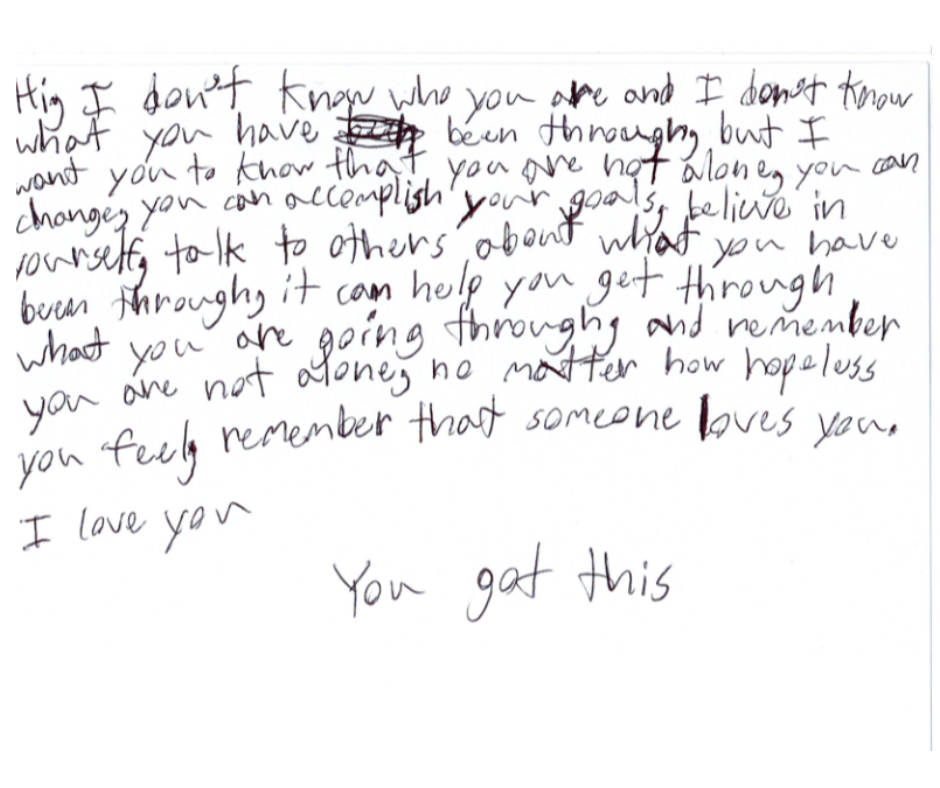 Hi, I don't know who you are and I don't know
what you have been through, but I
want you to know that you are not alone, you can
change, you can accomplish your goals, believe in
yourself, talk to others about what you have
been through, it can help you get through
what you are going through, and remember
you are not alone, no matter how hopeless
you feel, remember that someone loves you.
I love you
You got this